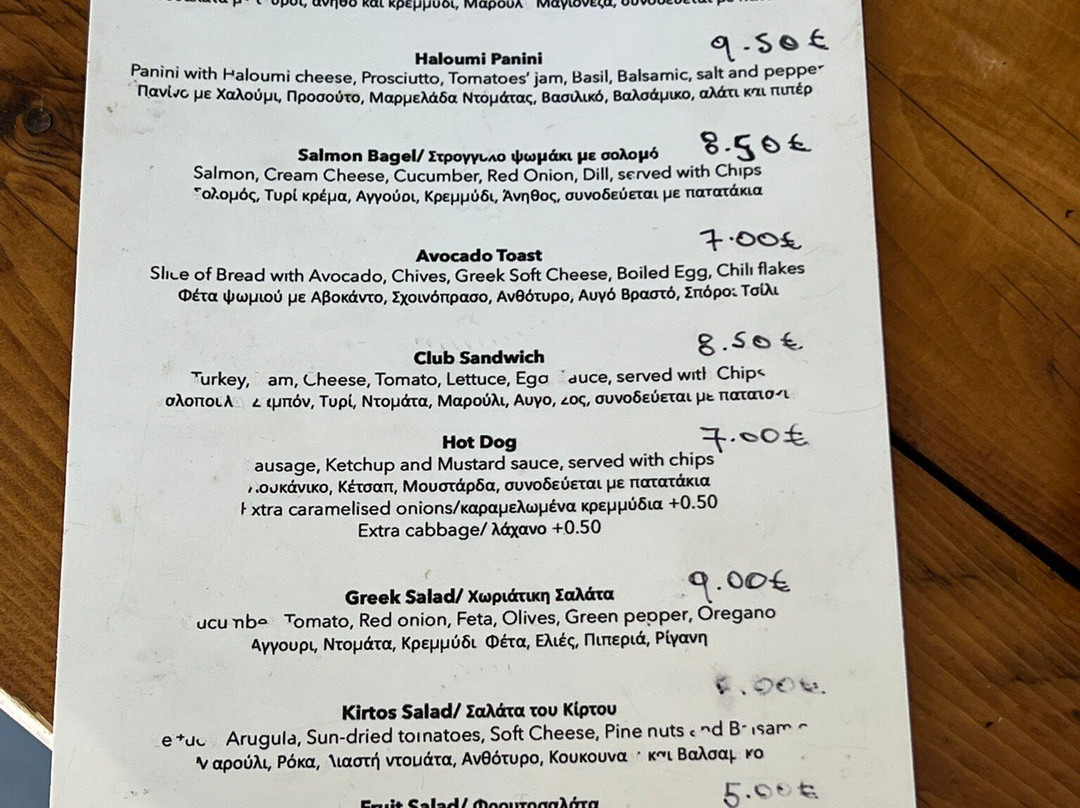 κρεμμύδι,
9.50€
Haloumi Panini
Panini with Haloumi cheese, Prosciutto, Tomatoes' jam, Basil, Balsamic, salt and pepper
Πανίνι με Χαλούμι, Προσούτο, Μαρμελάδα Ντομάτας, Βασιλικό, Βαλσάμικο, αλάτι και πιπέρ
8.50€
Salmon Bagel/ Στρογγυλο ψωμάκι με σολομό
Salmon, Cream Cheese, Cucumber, Red Onion, Dill, served with Chips
Σολομός, Τυρί κρέμα, Αγγούρι, Κρεμμύδι, Άνηθος, συνοδεύεται με πατατάκια
7.00€
Avocado Toast
Slice of Bread with Avocado, Chives, Greek Soft Cheese, Boiled Egg, Chili flakes
Φέτα ψωμιού με Αβοκάντο, Σχοινόπρασο, Ανθότυρο, Αυγό Βραστό, Σπόροι Τσίλι
8.50€
Club Sandwich
Turkey, am, Cheese, Tomato, Lettuce, Egg auce, served with Chips
Τυρί, Ντομάτα, Μαρούλι, Αυγο, συνοδεύεται με
7.00€
Hot Dog
ausage, Ketchup and Mustard sauce, served with chips
Λουκάνικο, Κέτσαπ, Μουστάρδα, συνοδεύεται με πατατάκια
Extra caramelised onions/καραμελωμένα κρεμμύδια +0.50
Extra cabbage/ λάχανο +0.50
9.00€
Greek Salad/ Χωριάτικη Σαλάτα
Tomato, Red onion, Feta, Olives, Green pepper, Oregano
Αγγουρι, Ντομάτα, Κρεμμύδι Φέτα, Ελιές, Πιπεριά, Ρίγανη
Kirtos Salad/ Σαλάτα του Κίρτου
Arugula, Sun-dried tomatoes, Soft Cheese, Pine nuts and
Μαρούλι, Ρόκα, Λιαστή ντομάτα, Ανθότυρο, και
5.00€
Fruit Salad/ Φρουτοσαλάτα